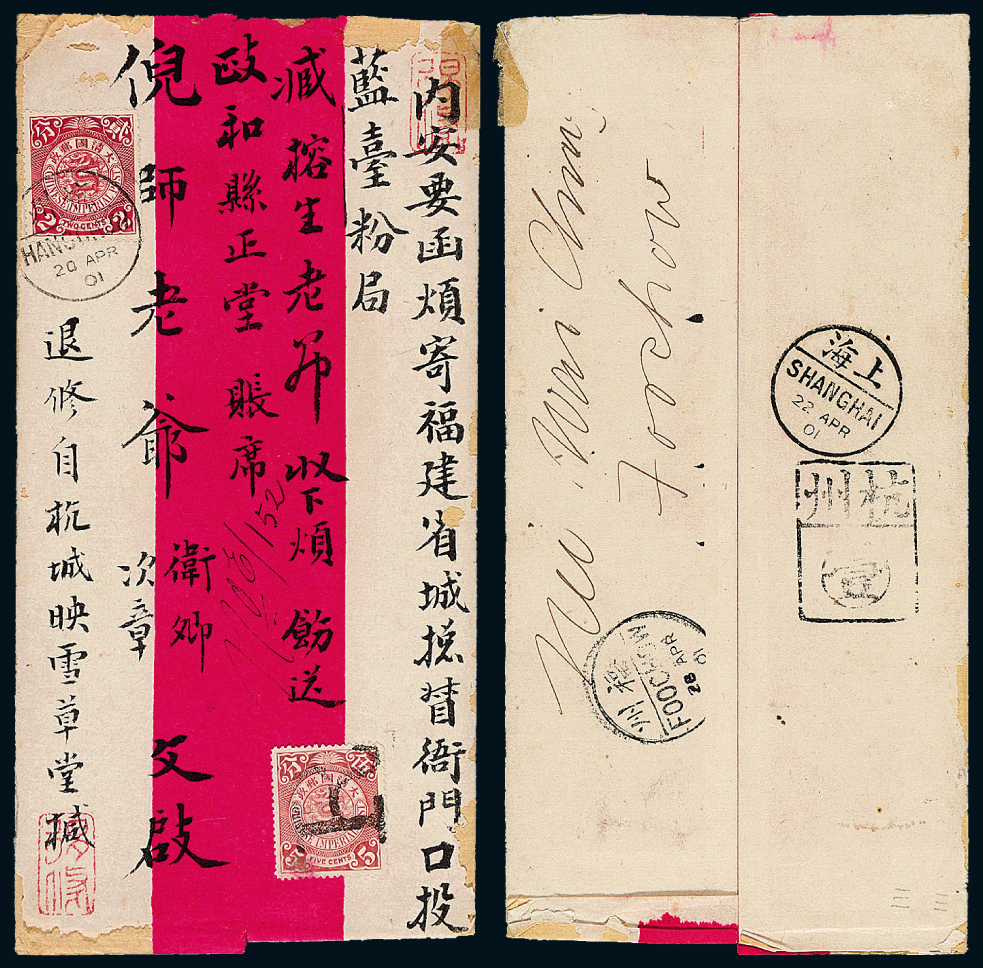 内安要函煩寄福建省城捴督衙門口投
藍臺粉局
臧榕生老 收下煩 飭送
政和縣正堂 賬席
倪師老爺 衛卿 次章 文啟
退修自杭城映雪草堂椷
分貳
大清國郵政
CHINESE IMPERIAL POST
2 TWO CENTS 2
SHANGHAI
20 APR
01
分伍
大清國郵政
CHINESE IMPERIAL POST
FIVE CENTS 5
Foochow
上海
SHANGHAI
22 APR
01
杭州
壹
福州
FOOCHOW
28 APR
01